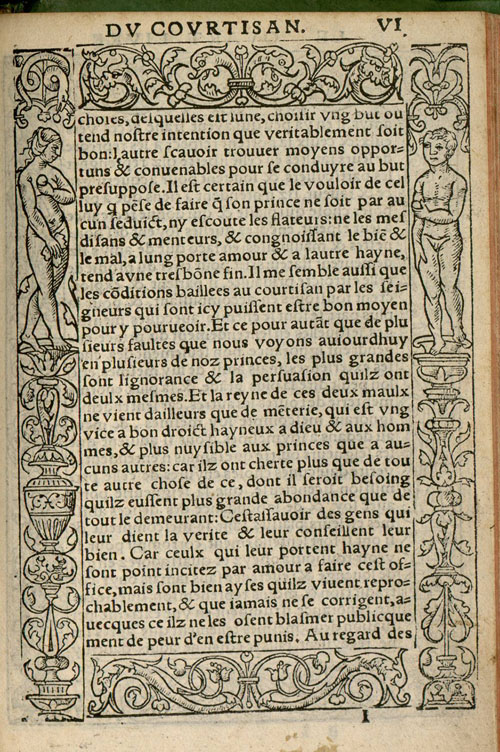 DV COVRTISAN. VI
choses, desquelles est lune, choisir vng but ou
tend nostre intention que veritablement soit
bon: lautre scauoir trouuer moyens oppor-
tuns & conuenables pour se conduyre au but
presuppose. Il est certain que le vouloir de cel
luy q̃ pẽse de faire q̃ son prince ne soit par au
cun seduict, ny escoute les flateurs: ne les mes
disans & menteurs, & congnoissant le biẽ &
le mal, a lung porte amour & a lautre hayne,
tend a vne tresbõne fin. Il me semble aussi que
les cõditions baillees au courtisan par les sei-
gneurs qui sont icy puissent estre bon moyen
pour y pourueoir. Et ce pour autãt que de plu
sieurs faultes que nous voyons auiourdhuy
en plusieurs de noz princes, les plus grandes
sont lignorance & la persuasion quilz ont
deulx mesmes. Et la reyne de ces deux maulx
ne vient dailleurs que de mẽterie, qui est vng
vice a bon droict hayneux a dieu & aux hom
mes, & plus nuysible aux princes que a au-
cuns autres: car ilz ont cherte plus que de tou
te autre chose de ce, dont il seroit besoing
quilz eussent plus grande abondance que de
tout le demeurant: Cestassauoir des gens qui
leur dient la verite & leur conseillent leur
bien. Car ceulx qui leur portent hayne ne
sont point incitez par amour a faire cest of-
fice, mais sont bien ayses quilz viuent repro-
chablement, & que iamais ne se corrigent, a-
uecques ce ilz ne les osent blasmer publicque
ment de peur d'en estre punis. Au regard des
I